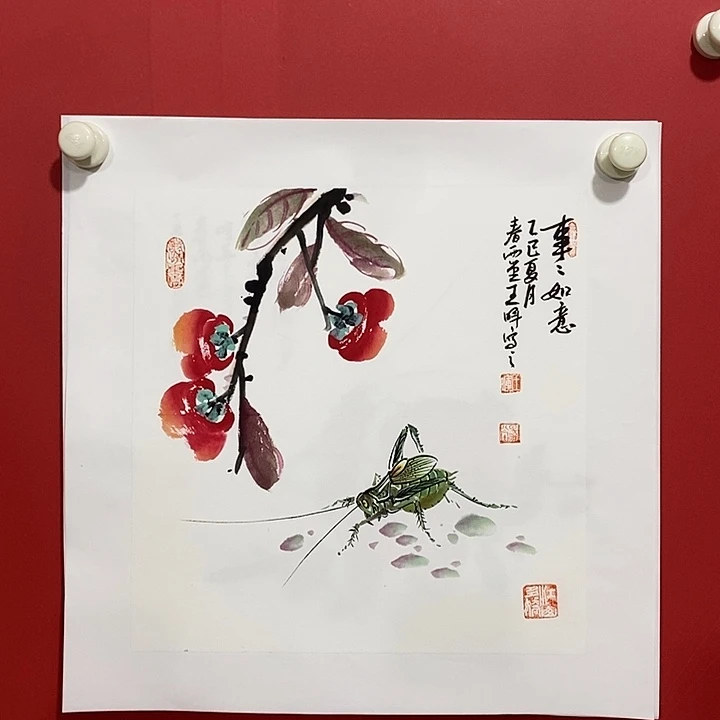 事〻如意
乙巳夏月
春雨堂王晖写之